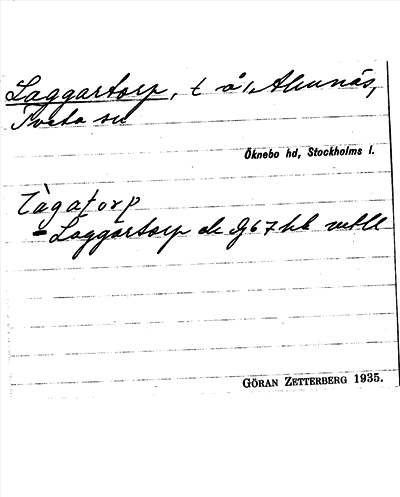 Laggartorp, t å/. Almnäs,
Tveta sn
Öknebo hd, Stockholms l.
Làgatorp
= Laggartorp ek G67 hb
GÖRAN ZETTERBERG 1935.